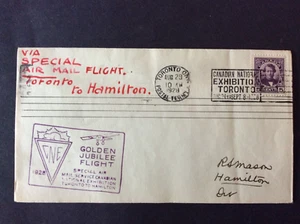 VIA
SPECIAL
AIR MAIL FLIGHT.
Toronto
to Hamilton.
TORONTO
AUG 29
10
1928
CANADIAN NATIONAL
EXHIBITION
TORONTO
CNE
1928
GOLDEN
JUBILEE
FLIGHT
SPECIAL AIR
MAIL SERVICE CANADIAN
NATIONAL EXHIBITION
TORONTO TO HAMILTON
RS Mason
Hamilton
Ont